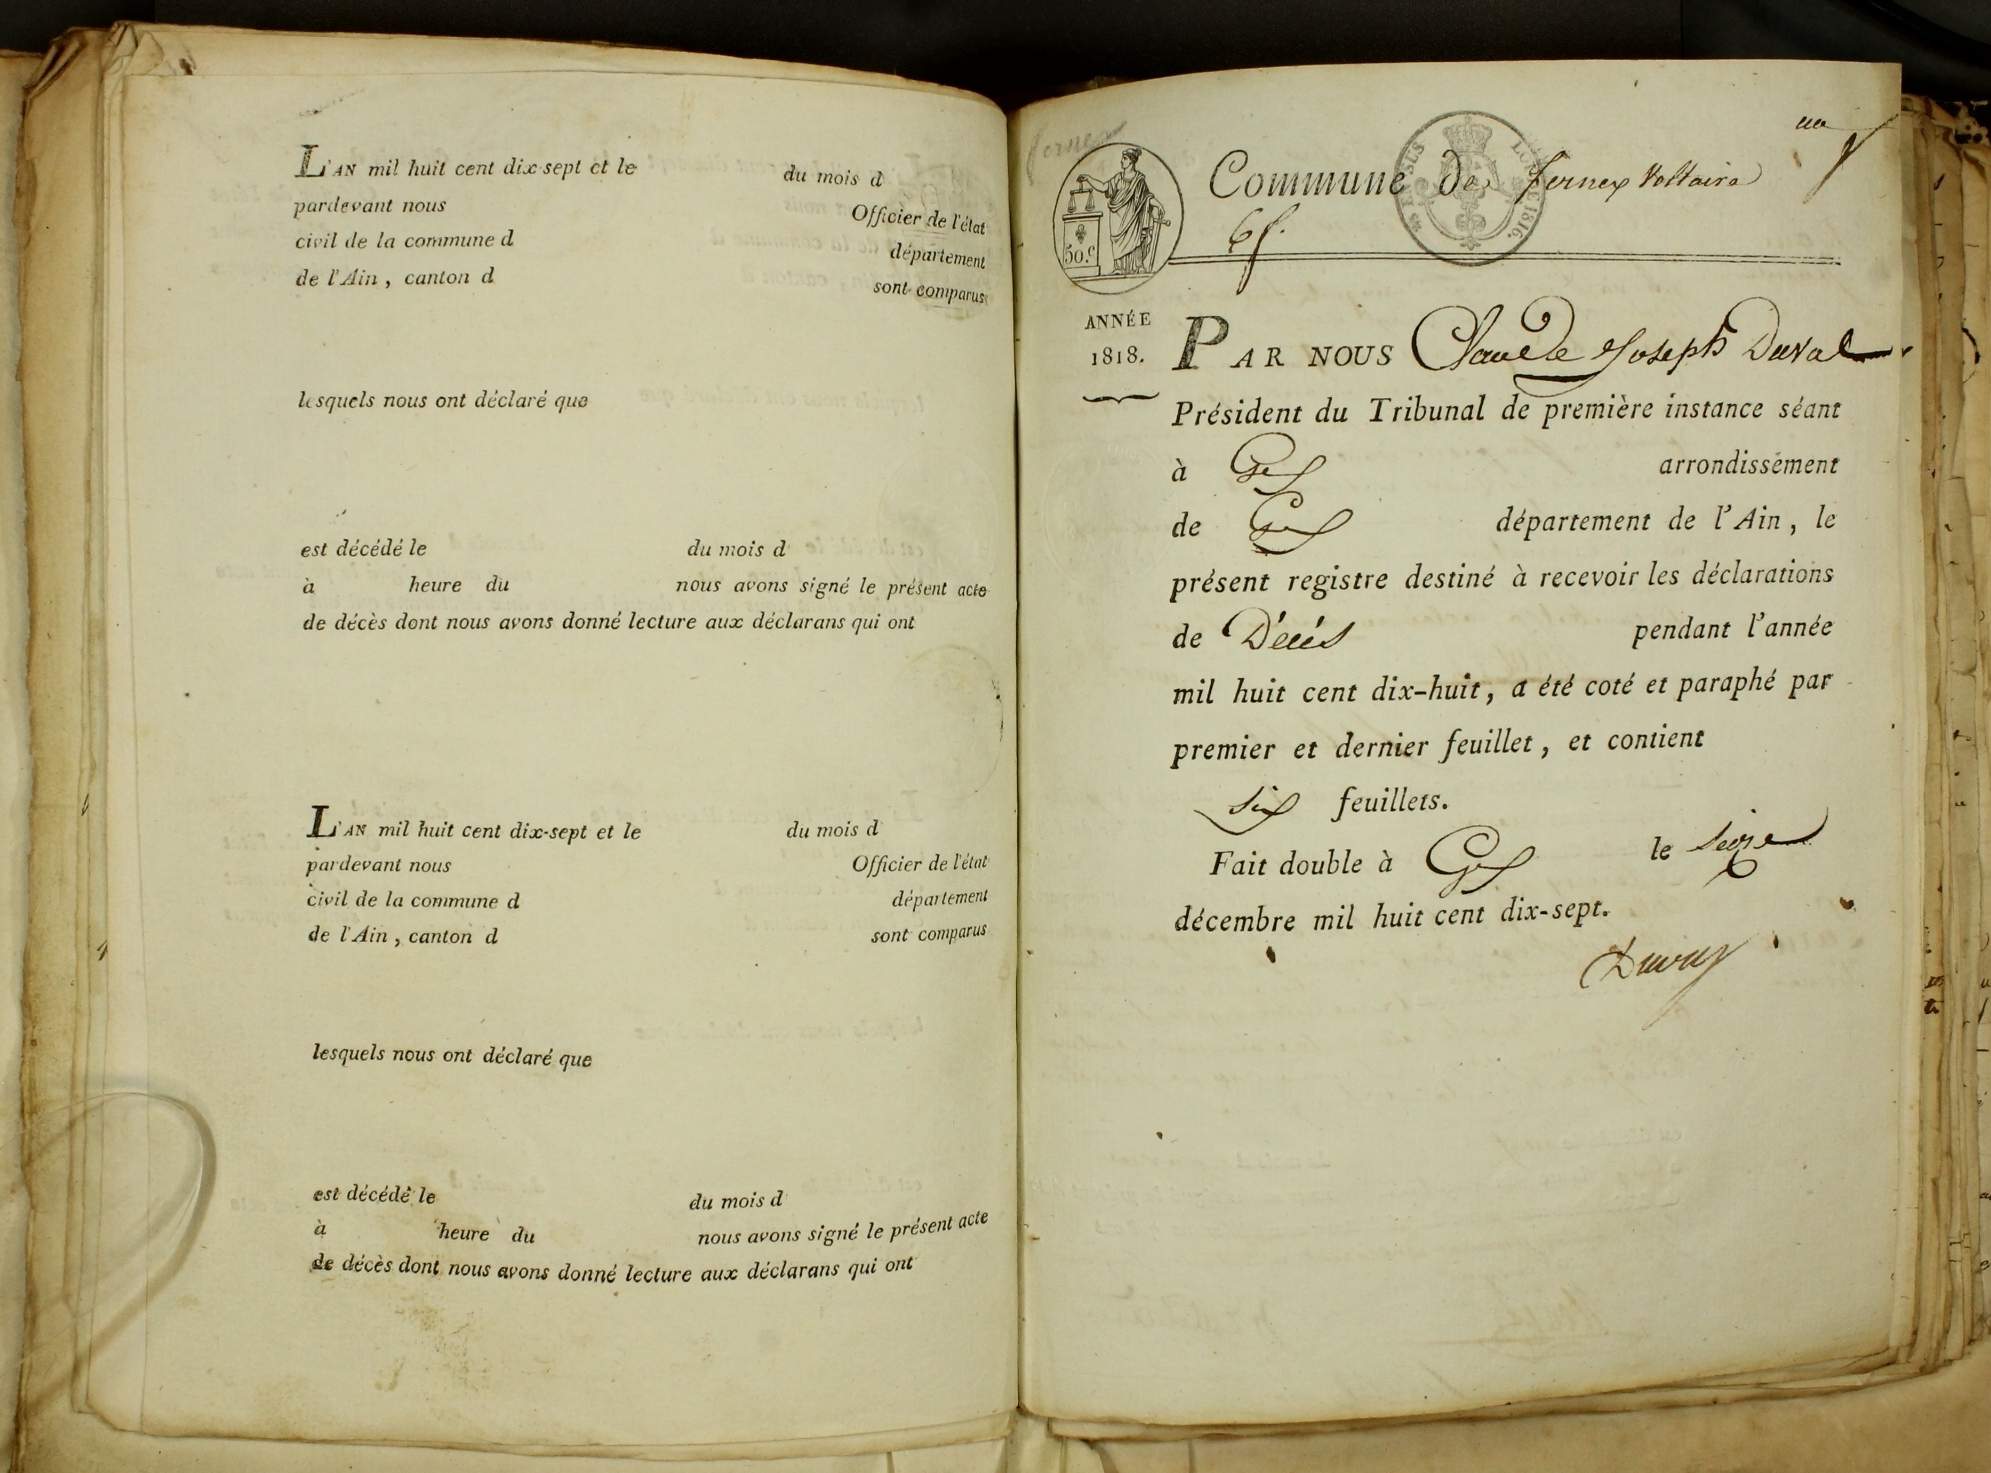 L'AN mil huit cent dix-sept et le du mois d
pardevant nous Officier de l'état
civil de la commune d département
de l'Ain, canton d sont comparus
lesquels nous ont déclaré que
est décédé le du mois d
à heure du nous avons signé le présent acte
de décès dont nous avons donné lecture aux déclarans qui ont
L'AN mil huit cent dix-sept et le du mois d
pardevant nous Officier de l'état
civil de la commune d département
de l'Ain, canton d sont comparus
lesquels nous ont déclaré que
est décédé le du mois d
à heure du nous avons signé le présent acte
de décès dont nous avons donné lecture aux déclarans qui ont
fernex
Commune de fernex Voltaire
6 f.
50.c
ANNÉE
1818.
PAR NOUS Claude Joseph Duval
Président du Tribunal de première instance séant
à Gex arrondissement
de Gex département de l'Ain, le
présent registre destiné à recevoir les déclarations
de Décés pendant l'année
mil huit cent dix-huit, a été coté et paraphé par
premier et dernier feuillet, et contient
six feuillets.
Fait double à Gex le seize
décembre mil huit cent dix-sept.
Duval